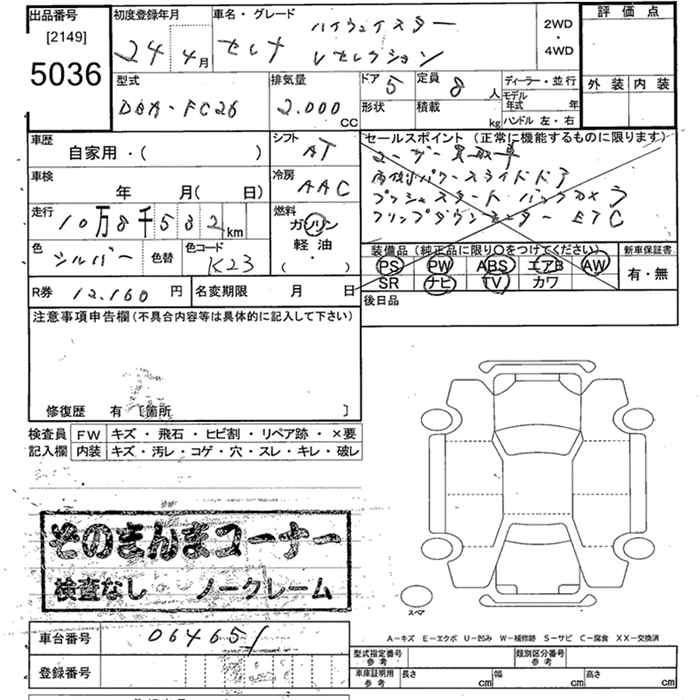 出品番号 初度登録年月 車名・グレード ハイウェイスター 2WD 評価点
[2149] 24年 4月 セレナ Vセレクション ・ 4WD
5036 外装 内装
型式 排気量 ドア 5 定員 8人 ディーラー・並行
DBA-FC26 2.000 CC 形状 積載 kg モデル年式 年
ハンドル 左・右
車歴 シフト セールスポイント (正常に機能するものに限ります)
自家用・( ) AT ユーザー買取車
車検 冷房 両側パワースライドドア
年 月( 日) AAC プッシュスタート バックカメラ
走行 燃料 フリップダウンモニター ETC
10万8千532km ガソリン
軽油
( ・ )
色 シルバー 色替 色コード K23
装備品 (純正品に限り〇をつけてください) 新車保証書
PS PW ABS エアB AW 有・無
SR ナビ TV カワ
R券 12.160 円 名変期限 月 日 後日品
注意事項申告欄 (不具合内容等は具体的に記入して下さい)
修復歴 有 〔箇所 〕
検査員 FW キズ・飛石・ヒビ割・リペア跡・×要
記入欄 内装 キズ・汚レ・コゲ・穴・スレ・キレ・破レ
そのまんまコーナー
検査なし ノークレーム
スペア
A-キズ E-エクボ U-凹み W-補修跡 S-サビ C-腐食 XX-交換済
車台番号 064651
型式指定番号 参考 類別区分番号 参考
登録番号
車庫証明用 参考 長さ cm 幅 cm 高さ cm